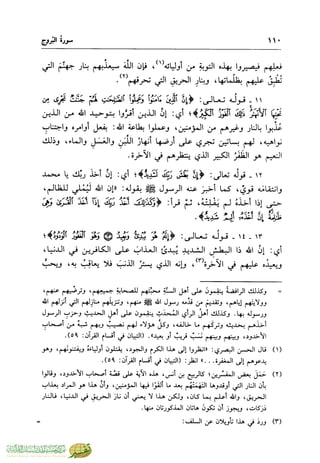 ١١٠
سورة البُروج
فعلهم فيصيروا بهذه التوبةِ من أوليائه(١)، فإن الله سيعذِّبهم بنار جهنَّم التي
تُطبِقُ عليهم بظلماتها، وبنارِ الحريق التي تحرقهم(٢).
١١ - قولُه تعالى: ﴿إِنَّ الَّذِينَ آمَنُوا وَعَمِلُوا الصَّالِحَاتِ لَهُمْ جَنَّاتٌ تَجْرِي مِن
تَحْتِهَا الْأَنْهَارُ ذَلِكَ الْفَوْزُ الْكَبِيرُ﴾؛ أي: إنَّ الذين أقرُّوا بتوحيد الله من الذين
عُذِّبوا بالنار وغيرهم من المؤمنين، وعملوا بطاعة الله: بفعل أوامره واجتناب
نواهيه، لهم بساتين تجري على أرضها أنهارُ اللَّبنِ والعسلِ والماء، وذلك
النعيم هو الظَّفَرُ الكبير الذي ينتظرهم في الآخرة.
١٢ - قولُه تعالى: ﴿إِنَّ بَطْشَ رَبِّكَ لَشَدِيدٌ﴾؛ أي: إنَّ أخذَ ربِّك يا محمد
وانتقامَه قويٌ، كما أخبرَ عنه الرسول ﷺ بقوله: «إن الله لَيُمْلِي للظالم،
حتى إذا أخذَهُ لم يُفْلِتْهُ، ثمَّ قرأ: ﴿وَكَذَلِكَ أَخْذُ رَبِّكَ إِذَا أَخَذَ الْقُرَى وَهِيَ
ظَالِمَةٌ إِنَّ أَخْذَهُ أَلِيمٌ شَدِيدٌ﴾.
١٣ - ١٤ - قولُه تعالى: ﴿إِنَّهُ هُوَ يُبْدِئُ وَيُعِيدُ ۝ وَهُوَ الْغَفُورُ الْوَدُودُ﴾؛
أي: إنَّ الله ذا البطشِ الشديدِ يُبدئُ العذابَ على الكافرين في الدنيا،
ويعيدُه عليهم في الآخرة(٣)، وإنه الذي يسترُ الذنبَ فلا يعاقبُ به، ويحبُّ
= وكذلك الرافضةُ ينقِمونَ على أهل السنَّةِ محبَّتَهم للصحابةِ جميعِهم، وترضِّيَهم عنهم،
وولايتَهم إياهم، وتقديمَ من قدَّمه رسول الله ﷺ منهم، وتنزيلَهم منازلَهم التي أنزلهم الله
ورسوله بها. وكذلك أهلُ الرأي المُحدَثِ ينقِمون على أهلِ الحديثِ وحزبِ الرسولِ
أخذَهم بحديثه وتركَهم ما خالفه، وكلُّ هؤلاءِ لهم نصيبٌ وبهم شبهٌ من أصحاب
الأخدود، وبينهم وبينهم نَسَبٌ قريبٌ أو بعيدٌ». (التبيان في أقسام القرآن: ٥٩).
(١) قال الحسن البصري: «انظروا إلى هذا الكرم والجود، يقتلون أولياءَهُ ويفتنونهم، وهو
يدعوهم إلى المغفرة...» انظر: (التبيان في أقسام القرآن: ٥٩).
(٢) حَمَلَ بعض المفسِّرين؛ كالربيع بن أنس، هذه الآية على قصَّة أصحاب الأخدود، وقالوا
بأن النار التي أوقدوها التَهَمَتْهُم بعد ما ألقَوا فيها المؤمنين، وأنَّ هذا هو المراد بعذاب
الحريق، والله أعلم بما كان، ولكن هذا لا يعني أن نارَ الحريق في الدنيا، فالنار
دَرَكات، ويجوزُ أن تكونَ هاتانِ المذكورتانِ منها.
(٣) وردَ في هذا تأويلان عن السلف:
=